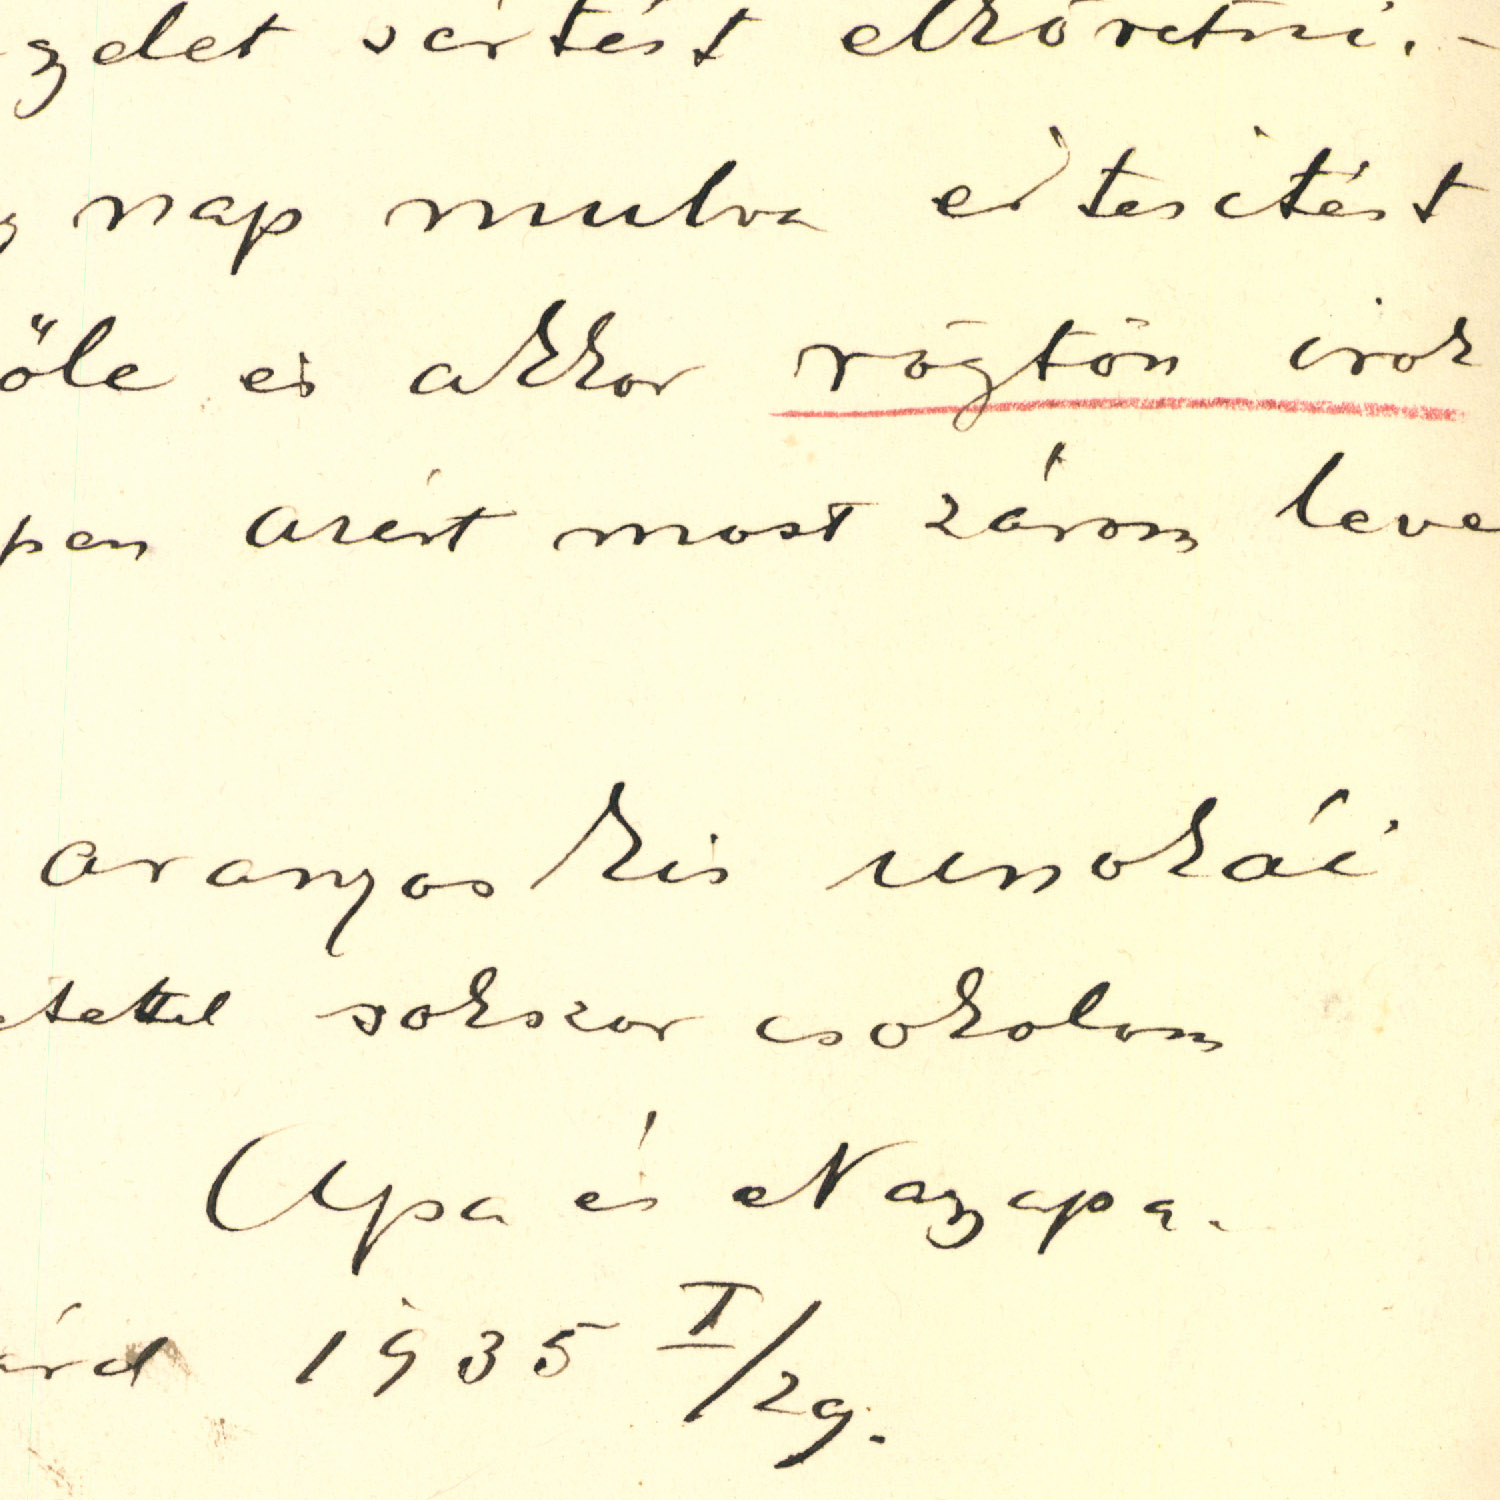 sértést elkövetni. -
nap mulva értesitést
és akkor rögtön irok
azért most zárom leve
aranyos kis unokái
sokszor csokolom
Apa és Nagyapa.
1935 I/29.